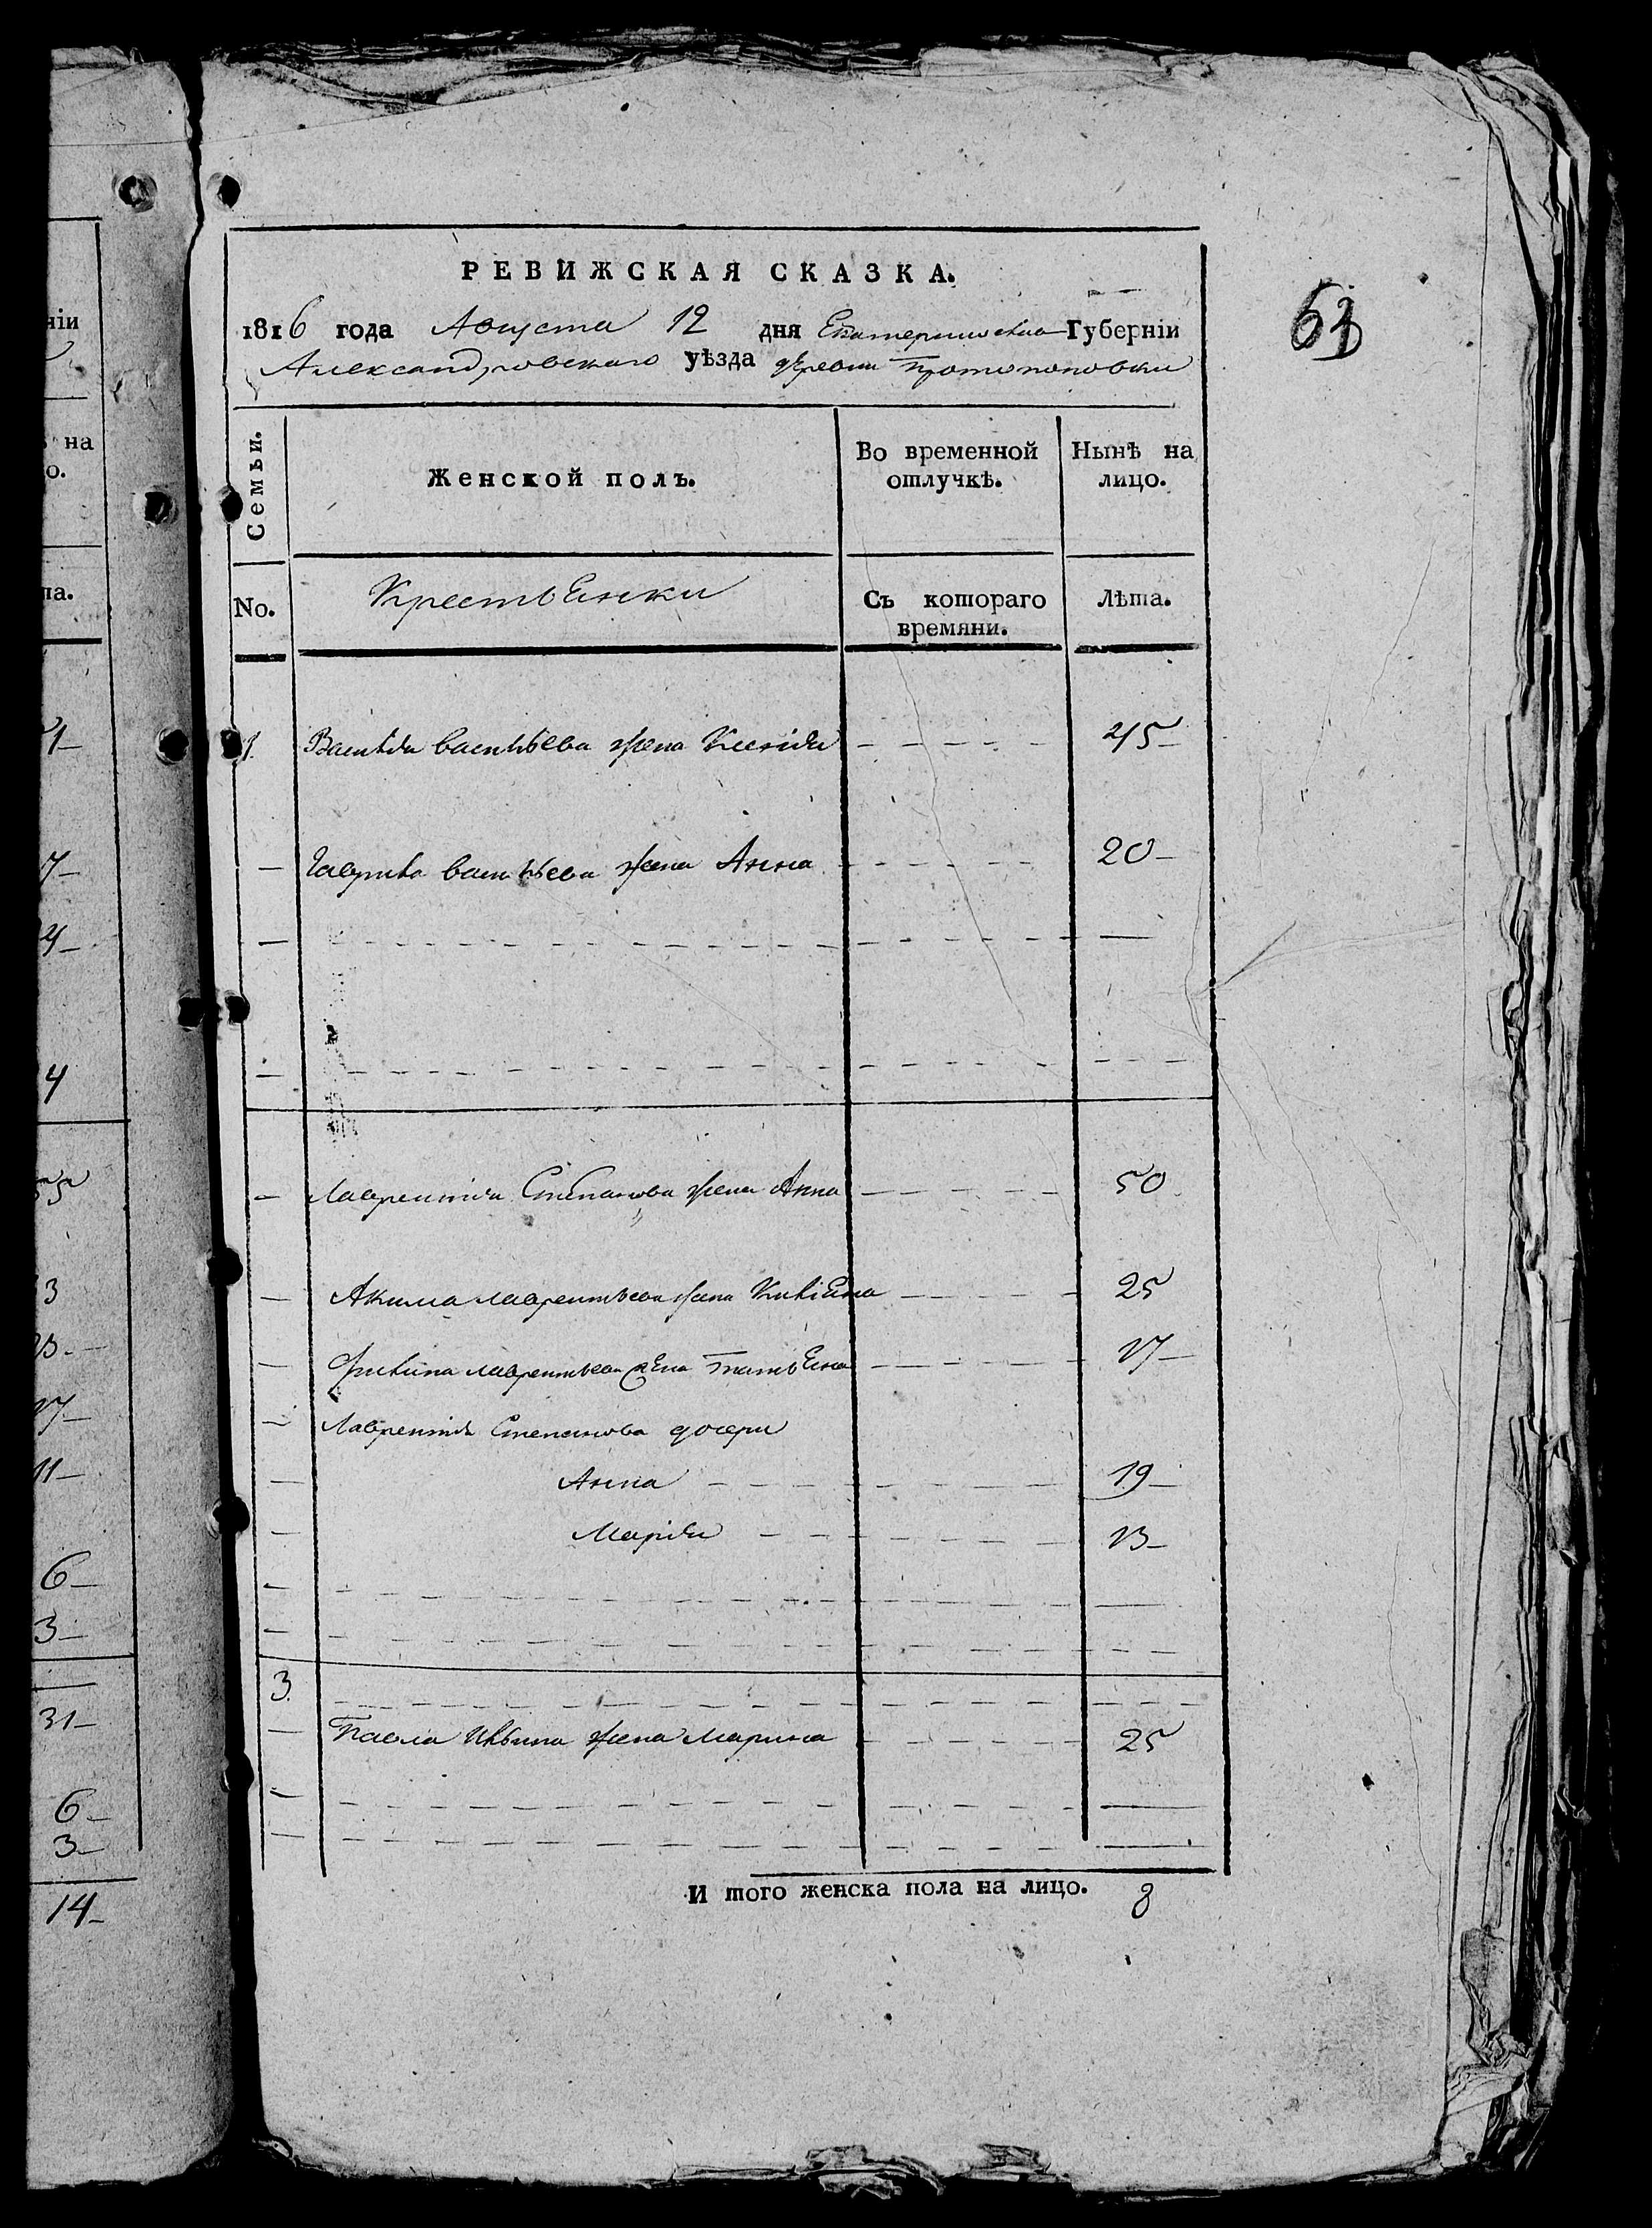 нiи
на
о.
ла.
1
7
4
4
55
3
17
11
6
3
31
6
3
14
РЕВИЖСКАЯ СКАЗКА.
63
1816 года Августа 12 дня Екатеринославской Губернiи
Александровскаго уѣзда деревни Протопоповки
Семьи.
Женской полъ.
Во временной отлучкѣ.
Нынѣ на лицо.
No.
Крестьянки
Съ котораго времяни.
Лѣта.
1. Василия Васильева жена Ксения 45
Гаврила Васильева жена Анна 20
Лаврентия Степанова жена Анна 50
Акима Лаврентьева жена 25
Филипа Лаврентьева жена Татьяна 17
Лаврентия Степанова дочери
Анна 19
Мария 13
3.
Павла Ильина жена Марина 25
И того женска пола на лицо. 8